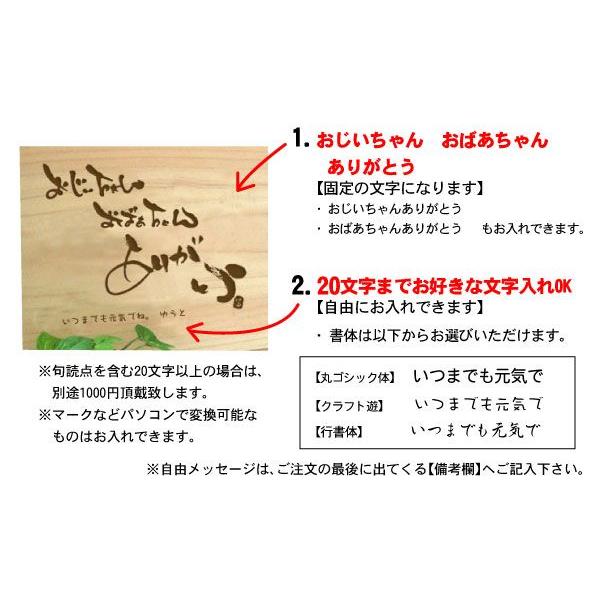 1. おじいちゃん　おばあちゃん
ありがとう
【固定の文字になります】
・おじいちゃんありがとう
・おばあちゃんありがとう　もお入れできます。
おじいちゃん
おばあちゃん
ありがとう。
いつまでも元気でね。 ゆうと
2. 20文字までお好きな文字入れOK
【自由にお入れできます】
・書体は以下からお選びいただけます。
【丸ゴシック体】いつまでも元気で
【クラフト遊】いつまでも元気で
【行書体】いつまでも元気で
※句読点を含む20文字以上の場合は、
別途1000円頂戴致します。
※マークなどパソコンで変換可能な
ものはお入れできます。
※自由メッセージは、ご注文の最後に出てくる【備考欄】へご記入下さい。